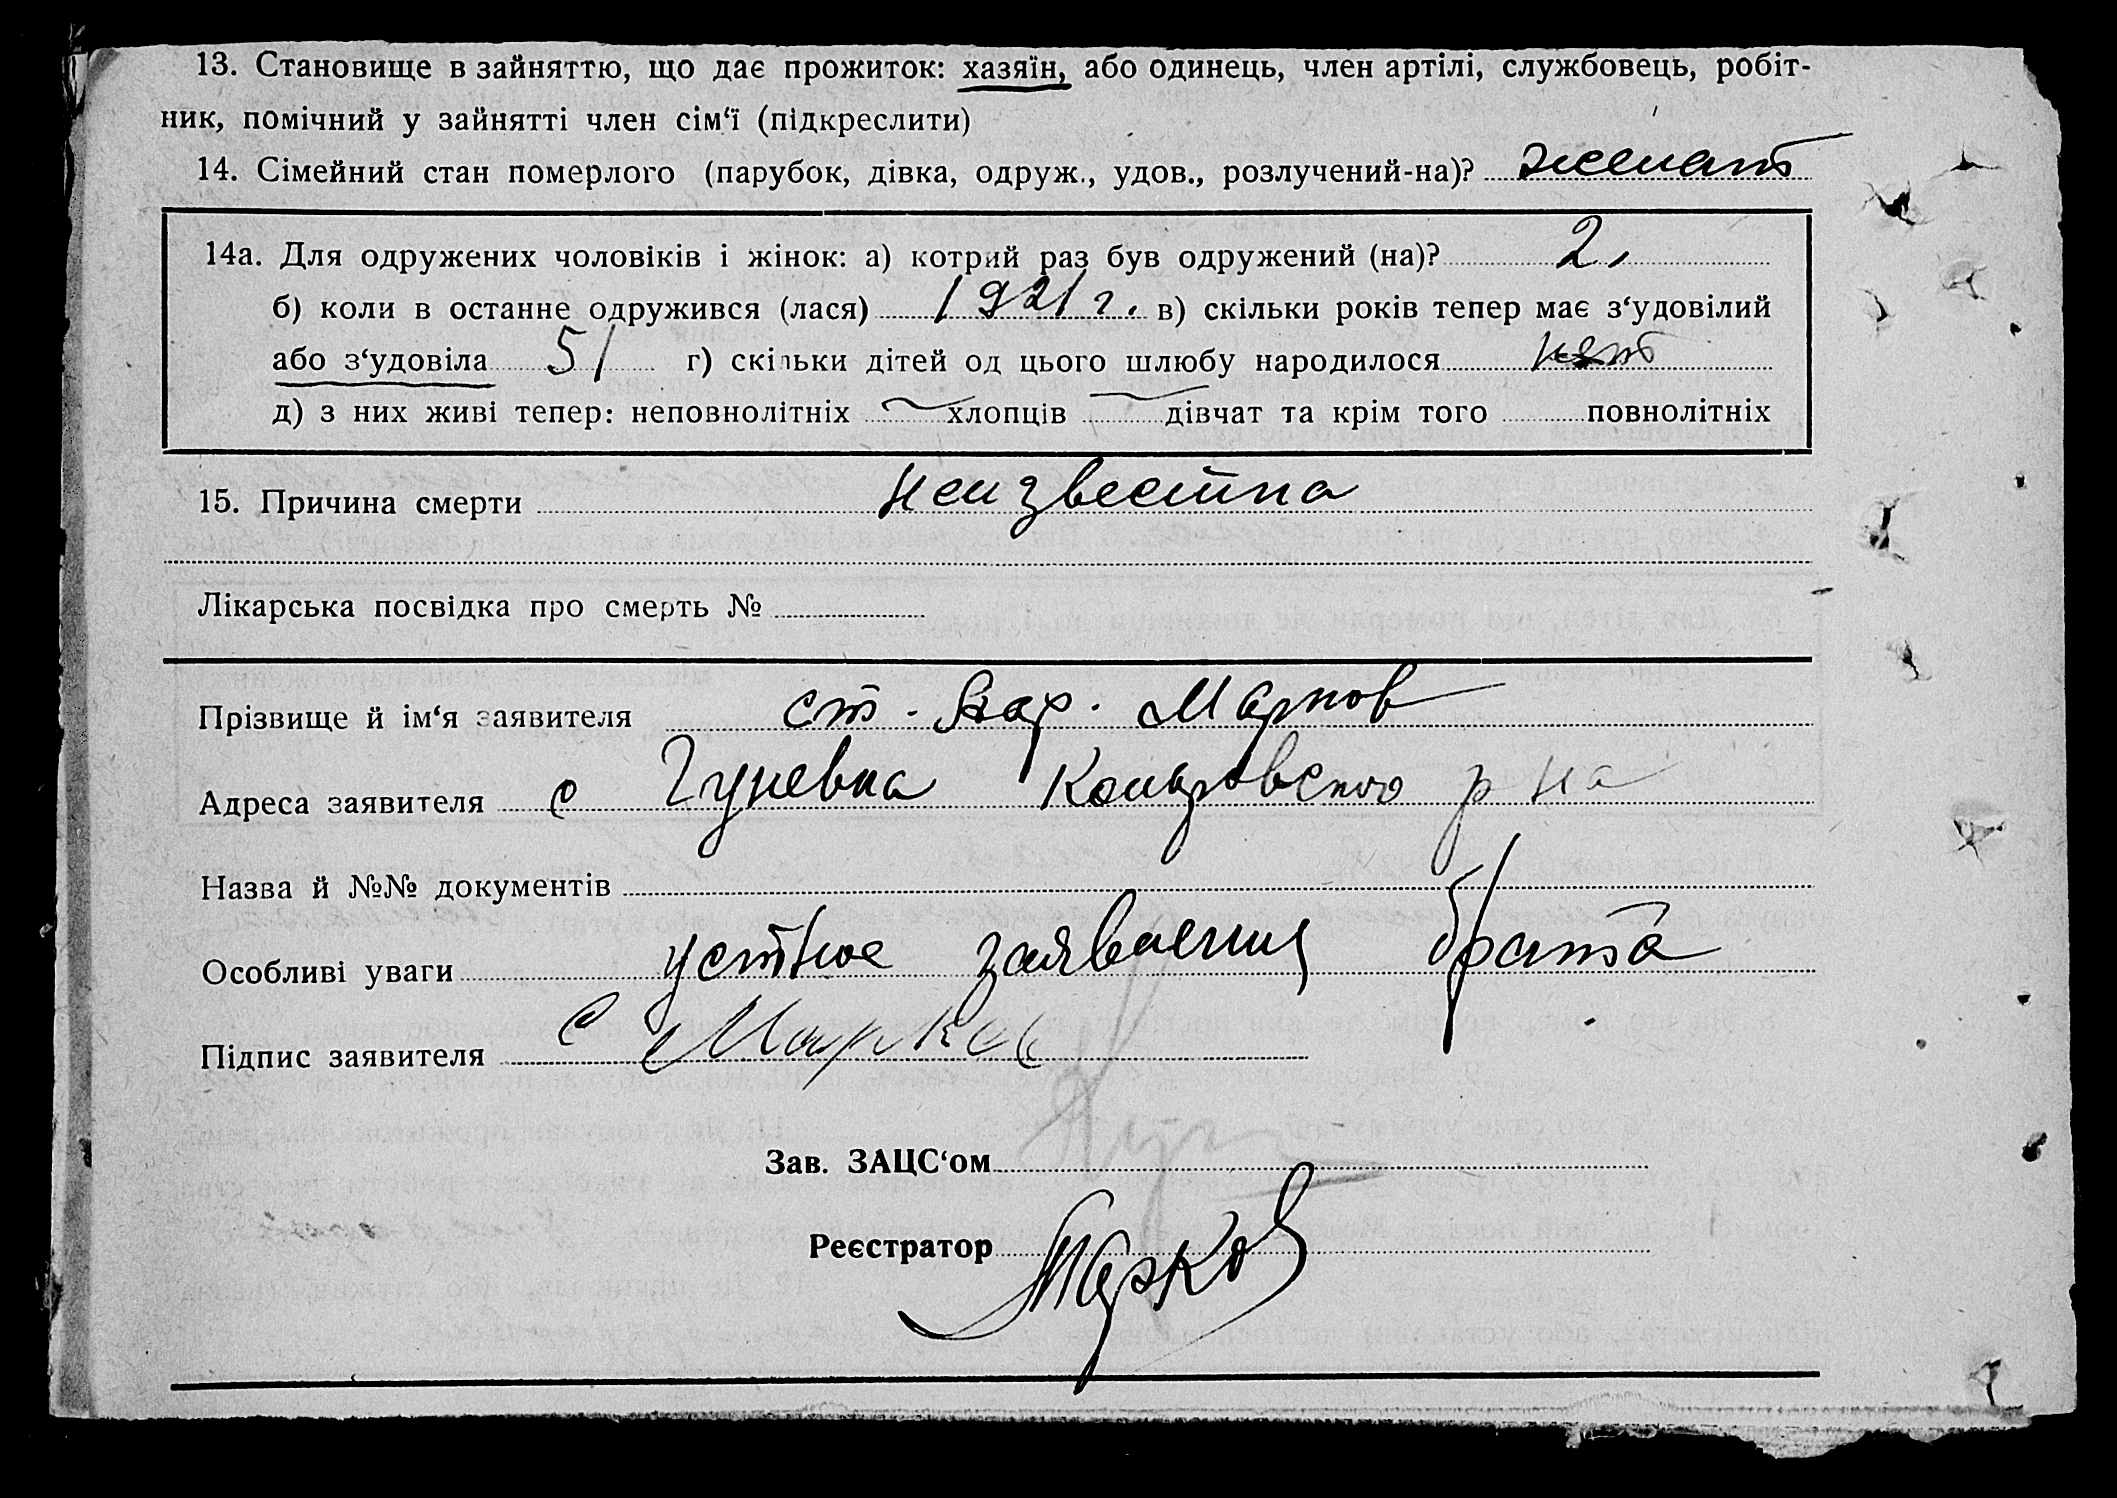 13. Становище в зайняттю, що дає прожиток: хазяїн, або одинець, член артілі, службовець, робіт-
ник, помічний у зайнятті член сім‘ї (підкреслити)
14. Сімейний стан померлого (парубок, дівка, одруж., удов., розлучений-на)? женат
14а. Для одружених чоловіків і жінок: а) котрий раз був одружений (на)? 2.
б) коли в останне одружився (лася) 1921 г. в) скільки років тепер має з‘удовілий
або з‘удовіла 51 г) скільки дітей од цього шлюбу народилося нет
д) з них живі тепер: неповнолітніх хлопців дівчат та крім того повнолітніх
15. Причина смерти неизвестна
Лікарська посвідка про смерть №
Прізвище й ім‘я заявителя ст. Марков
Адреса заявителя с р на
Назва й №№ документів
Особливі уваги устное заявления брата
Підпис заявителя С Марков
Зав. ЗАЦС‘ом
Реєстратор Марков